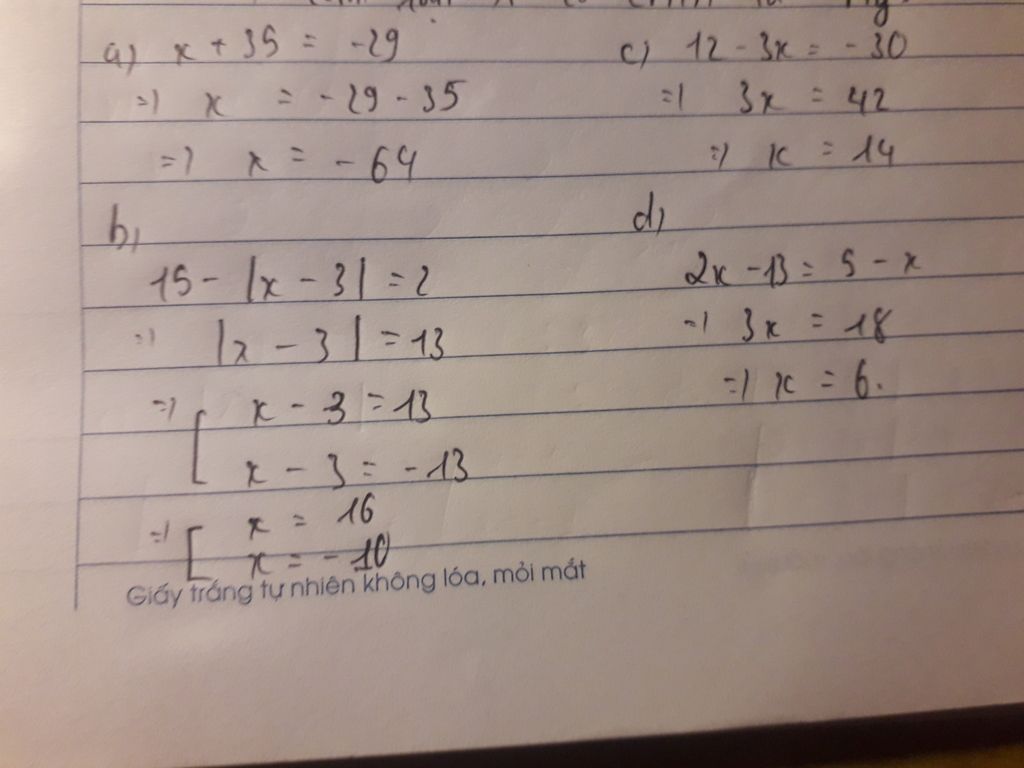 a) x + 35 = -29
=) x = -29 - 35
=) x = -64
b)
15 - |x - 3| = 2
=) |x - 3| = 13
=) [ x - 3 = 13
x - 3 = -13
=) [ x = 16
x = -10
c) 12 - 3x = -30
=) 3x = 42
=) x = 14
d)
2x - 13 = 5 - x
=) 3x = 18
=) x = 6.
Giấy trắng tự nhiên không lóa, mỏi mắt